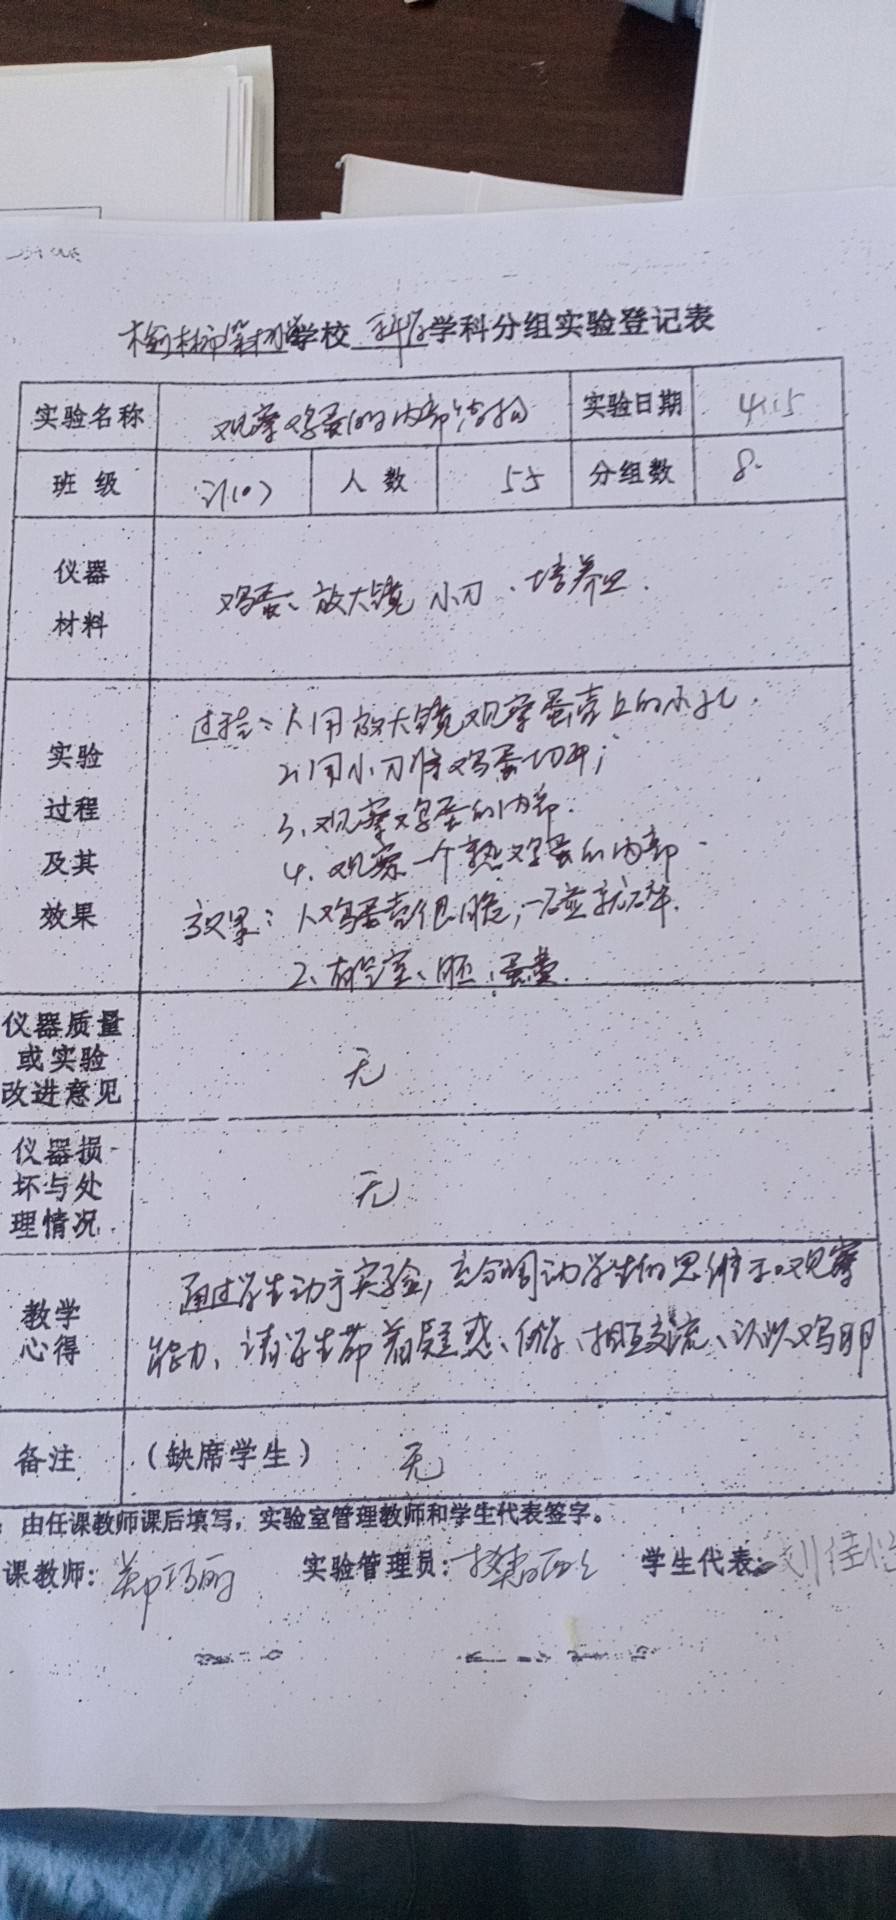 学校 科学 学科分组实验登记表
实验名称 观察鸡蛋的内部结构 实验日期 4.15
班级 人数 55 分组数 8.
仪器材料 鸡蛋、放大镜 小刀、培养皿.
实验过程及其效果
过程: 1.用放大镜观察蛋壳上的小孔.
2.用小刀将鸡蛋切开;
3、观察鸡蛋的内部.
4.观察一个熟鸡蛋的内部.
效果: 1.鸡蛋壳很脆,一碰就碎.
2、有气室、胚、蛋黄.
仪器质量或实验改进意见 无
仪器损坏与处理情况 无
教学心得 通过学生动手实验,充分调动学生的思维和观察
能力、请学生带着疑惑、相互交流、认识鸡卵
备注 (缺席学生) 无
: 由任课教师课后填写,实验室管理教师和学生代表签字。
课教师: 郑巧丽 实验管理员: 学生代表: 刘佳怡